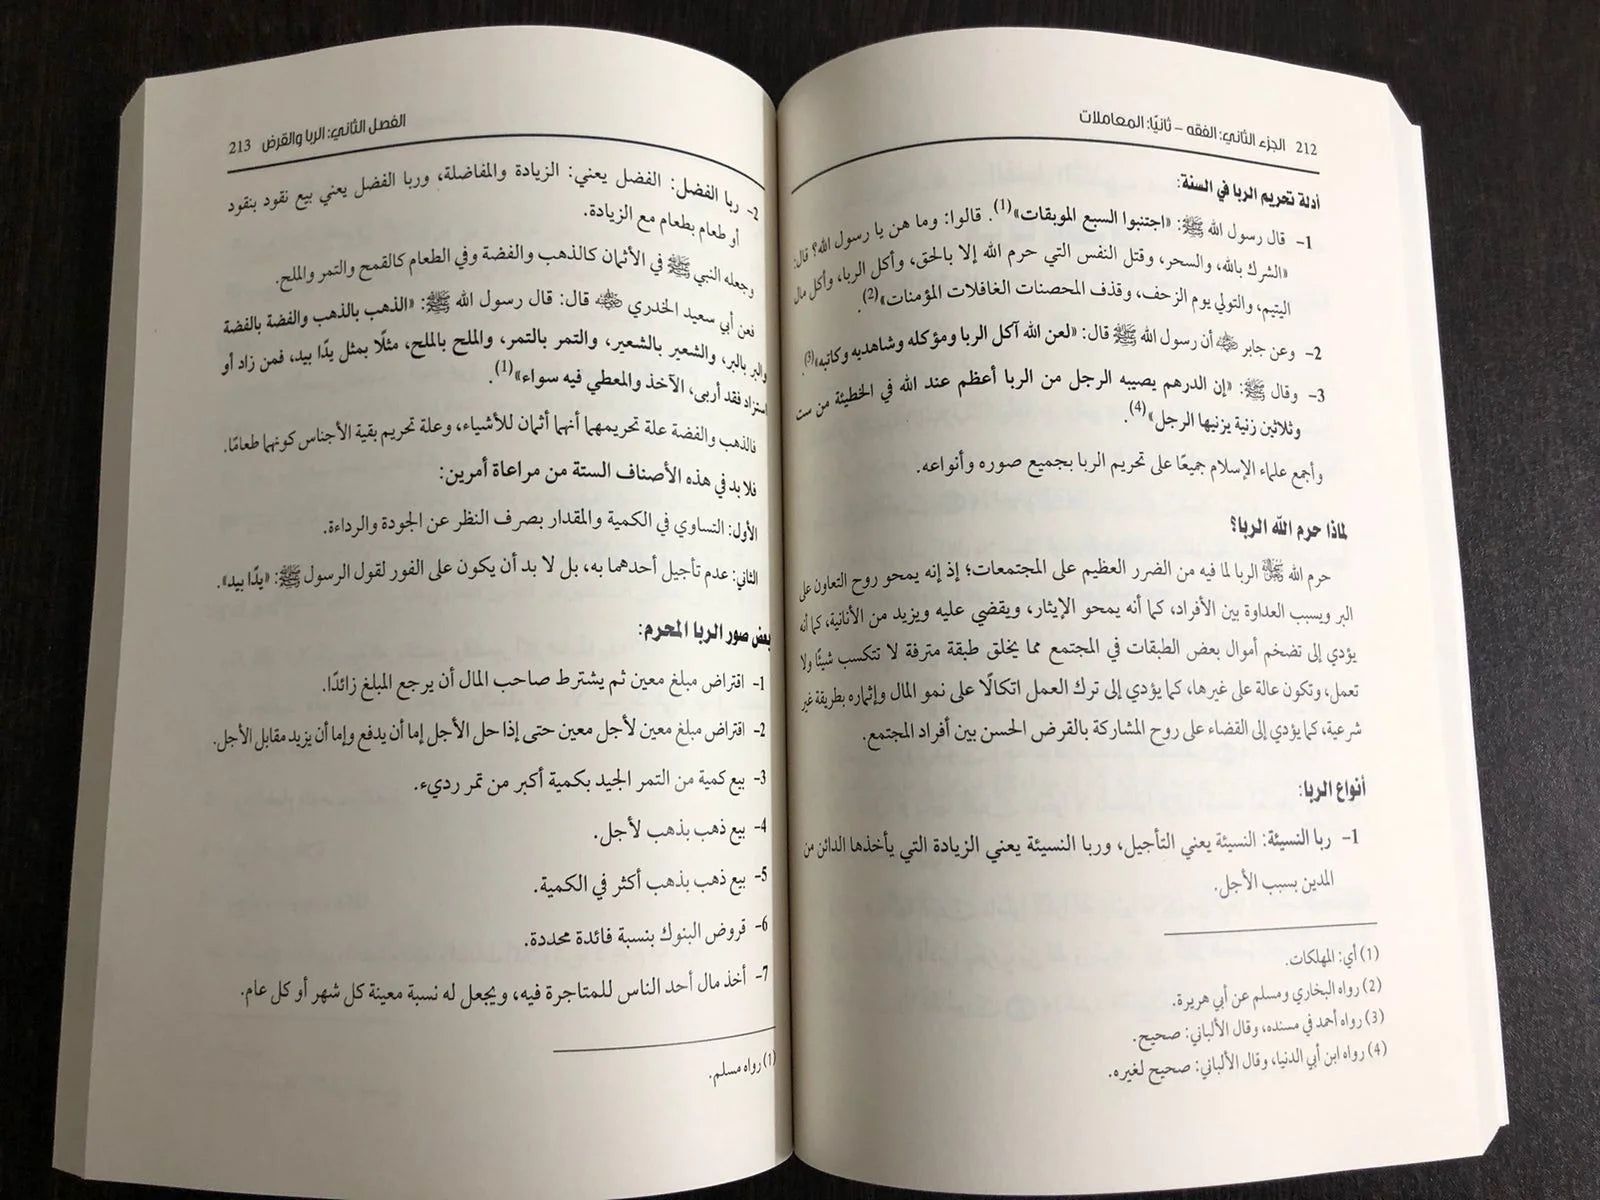 212 الجزء الثاني: الفقه – ثانيًا: المعاملات
أدلة تحريم الربا في السنة:
1- قال رسول الله ﷺ: «اجتنبوا السبع الموبقات»(1). قالوا: وما هن يا رسول الله؟ قال:
«الشرك بالله، والسحر، وقتل النفس التي حرم الله إلا بالحق، وأكل الربا، وأكل مال
اليتيم، والتولي يوم الزحف، وقذف المحصنات الغافلات المؤمنات»(2).
2- وعن جابر ﵁ أن رسول الله ﷺ قال: «لعن الله آكل الربا ومؤكله وشاهديه وكاتبه»(3).
3- وقال ﷺ: «إن الدرهم يصيبه الرجل من الربا أعظم عند الله في الخطيئة من ست
وثلاثين زنية يزنيها الرجل»(4).
وأجمع علماء الإسلام جميعًا على تحريم الربا بجميع صوره وأنواعه.
لماذا حرم الله الربا؟
حرم الله ﷻ الربا لما فيه من الضرر العظيم على المجتمعات؛ إذ إنه يمحو روح التعاون على
البر ويسبب العداوة بين الأفراد، كما أنه يمحو الإيثار، ويقضي عليه ويزيد من الأنانية، كما أنه
يؤدي إلى تضخم أموال بعض الطبقات في المجتمع مما يخلق طبقة مترفة لا تتكسب شيئًا ولا
تعمل، وتكون عالة على غيرها، كما يؤدي إلى ترك العمل اتكالًا على نمو المال وإثماره بطريقة غير
شرعية، كما يؤدي إلى القضاء على روح المشاركة بالقرض الحسن بين أفراد المجتمع.
أنواع الربا:
1- ربا النسيئة: النسيئة يعني التأجيل، وربا النسيئة يعني الزيادة التي يأخذها الدائن من
المدين بسبب الأجل.
(1) أي: المهلكات.
(2) رواه البخاري ومسلم عن أبي هريرة.
(3) رواه أحمد في مسنده، وقال الألباني: صحيح.
(4) رواه ابن أبي الدنيا، وقال الألباني: صحيح لغيره.
الفصل الثاني: الربا والقرض 213
2- ربا الفضل: الفضل يعني: الزيادة والمفاضلة، وربا الفضل يعني بيع نقود بنقود
أو طعام بطعام مع الزيادة.
وجعله النبي ﷺ في الأثمان كالذهب والفضة وفي الطعام كالقمح والتمر والملح.
فعن أبي سعيد الخدري ﵁ قال: قال رسول الله ﷺ: «الذهب بالذهب والفضة بالفضة
والبر بالبر، والشعير بالشعير، والتمر بالتمر، والملح بالملح، مثلًا بمثل يدًا بيد، فمن زاد أو
استزاد فقد أربى، الآخذ والمعطي فيه سواء»(1).
فالذهب والفضة علة تحريمهما أنهما أثمان للأشياء، وعلة تحريم بقية الأجناس كونهما طعامًا.
فلا بد في هذه الأصناف الستة من مراعاة أمرين:
الأول: التساوي في الكمية والمقدار بصرف النظر عن الجودة والرداءة.
الثاني: عدم تأجيل أحدهما به، بل لا بد أن يكون على الفور لقول الرسول ﷺ: «يدًا بيد».
بعض صور الربا المحرم:
1- اقتراض مبلغ معين ثم يشترط صاحب المال أن يرجع المبلغ زائدًا.
2- اقتراض مبلغ معين لأجل معين حتى إذا حل الأجل إما أن يدفع وإما أن يزيد مقابل الأجل.
3- بيع كمية من التمر الجيد بكمية أكبر من تمر رديء.
4- بيع ذهب بذهب لأجل.
5- بيع ذهب بذهب أكثر في الكمية.
6- قروض البنوك بنسبة فائدة محددة.
7- أخذ مال أحد الناس للمتاجرة فيه، ويجعل له نسبة معينة كل شهر أو كل عام.
(1) رواه مسلم.